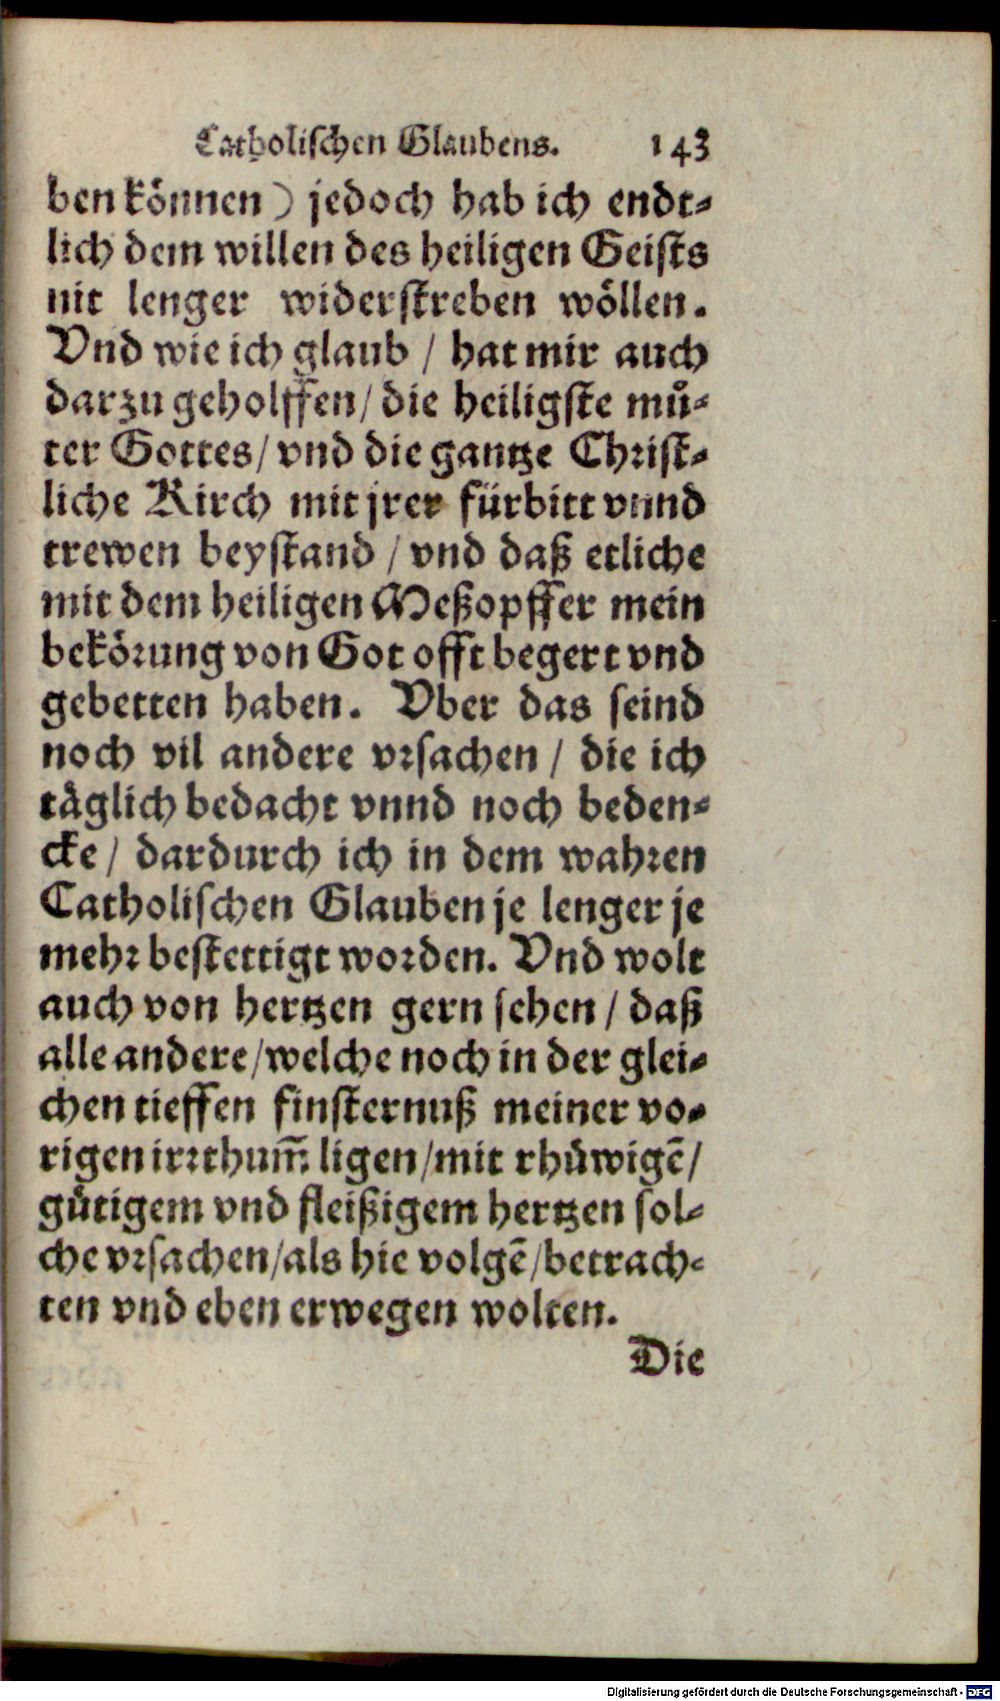 Catholischen Glaubens. 143
ben können) jedoch hab ich endt⸗
lich dem willen des heiligen Geists
nit lenger widerstreben wöllen.
Vnd wie ich glaub / hat mir auch
darzu geholffen / die heiligste mů⸗
ter Gottes / vnd die gantze Christ⸗
liche Kirch mit jrer fürbitt vnnd
trewen beystand / vnd daß etliche
mit dem heiligen Meßopffer mein
bekörung von Got offt begert vnd
gebetten haben. Vber das seind
noch vil andere vrsachen / die ich
täglich bedacht vnnd noch beden⸗
cke / dardurch ich in dem wahren
Catholischen Glauben je lenger je
mehr bestettigt worden. Vnd wolt
auch von hertzen gern sehen / daß
alle andere / welche noch in der glei⸗
chen tieffen finsternuß meiner vo⸗
rigen irrthum̃ ligen / mit rhůwigẽ /
gůtigem vnd fleißigem hertzen sol⸗
che vrsachen / als hie volgẽ / betrach⸗
ten vnd eben erwegen wolten.
Die
Digitalisierung gefördert durch die Deutsche Forschungsgemeinschaft - DFG